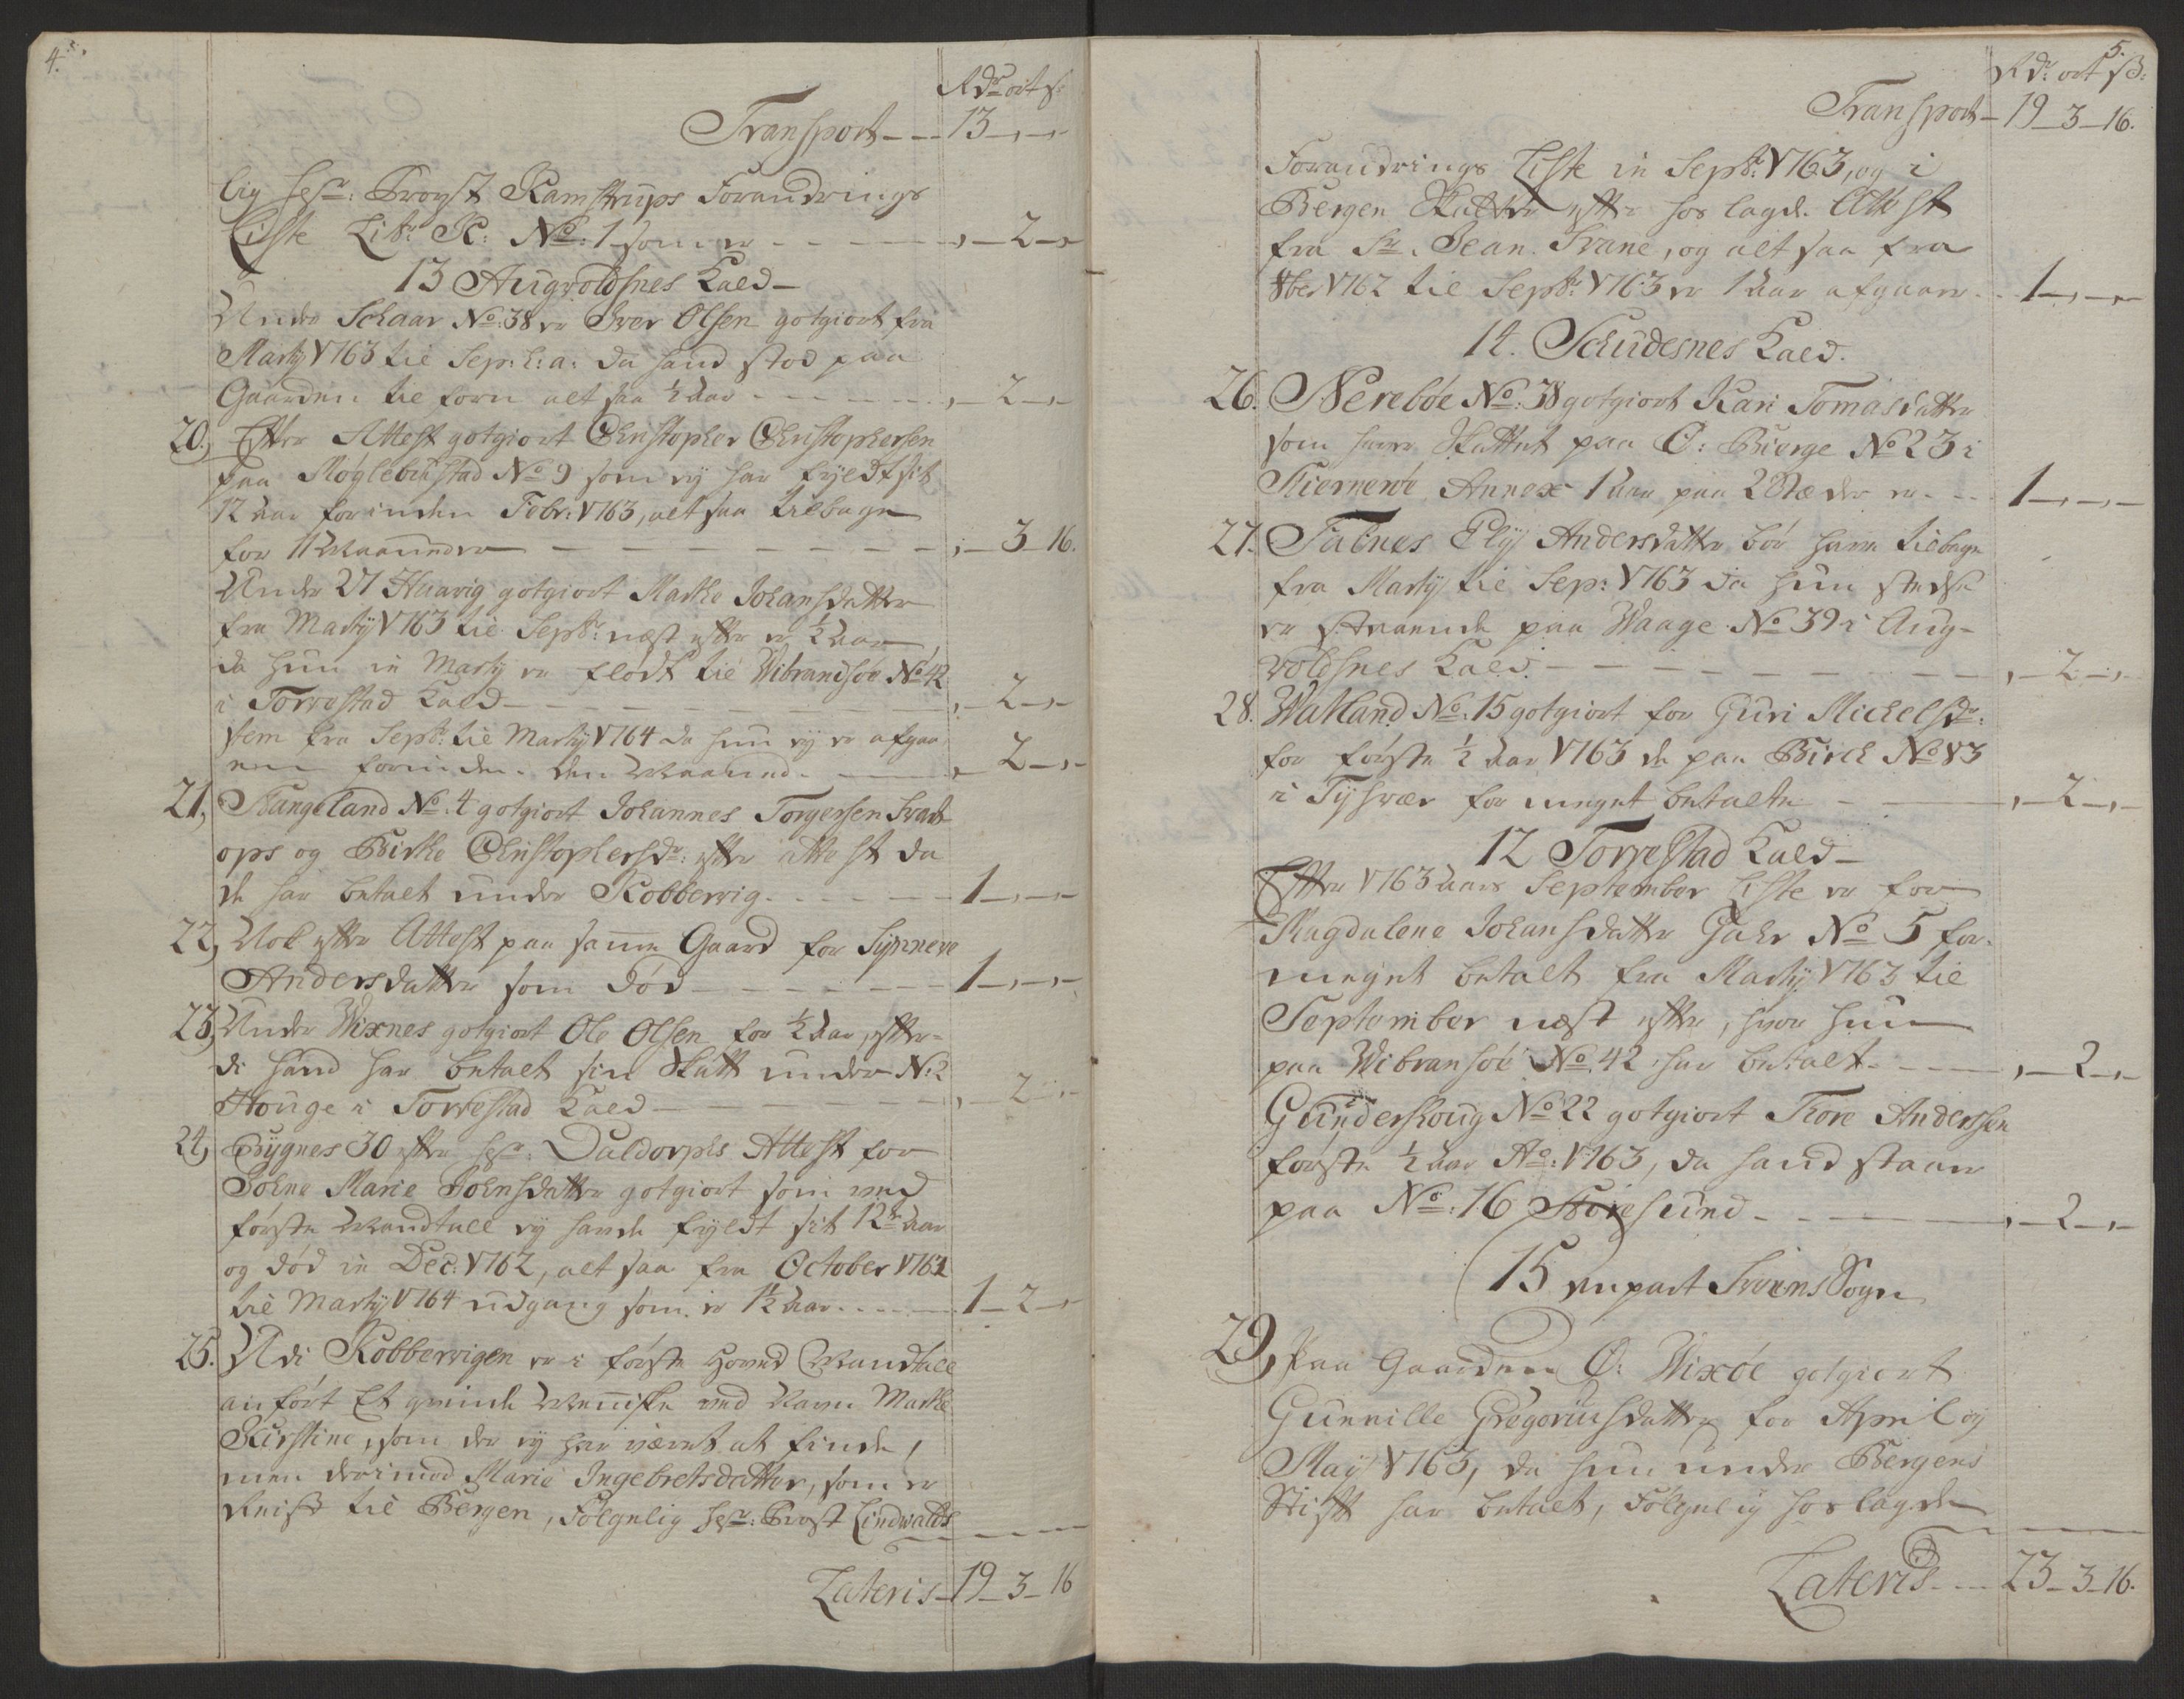 4.
Rdr ort s:
Transport - - - 13 - " - "
lig hr: Provst Ramstrups Forandrings
Liste Litr. K: No: 1 som er - - - " - 2 - "
13 Augvoldsnes Kald -
Under Schaar No: 38 er Iver Olsen gotgiort fra
Martj 1763 til Sep: h: a: da hand stod paa
Gaarden til forn alt saa ½ aar - - - " - 2 - "
20, Efter Attest gotgiort Christopher Christophersen
paa Møglebustad No 9 som ey har fyldt sit
12 aar forinden Febr: 1763, alt saa tilbage
for 11 Maaneder - - - " - 3 - 16.
Under 27 Huavig gotgiort Marthe Johansdatter
fra Martj 1763 til Septbr: næst efter er ½ aar
da hun in Martj er flødt til Wibrandsøe No 42
i Torvestad Kald - - - " - 2 - "
Item fra Septbr: til Martj 1764 da hun ey er afgaa-
en forinden den Maaned - - - " - 2 - "
21, Stangeland No. 4 gotgiort Johannes Torgersen Svart-
ops og Birthe Christophersdr: efter attest da
de har betalt under Kobbervig - - - 1 - " - "
22, Nok efter Attest paa samme Gaard for Synneve
Andersdatter som død - - - 1 - " - "
23, Under Wixnes gotgiort Ole Olsen for ½ aar, efter-
di hand har betalt sin Skatt under No: 2
Houge i Torvestad Kald - - - " - 2 - "
24, Bygnes 30 efter hr: Daldorphs Attest for
Johne Marie Johnsdatter gotgiort som ved
første Mandtall ey havde fyldt sit 12te aar
og død in Dec: 1762, alt saa fra October 1762
til Martj 1764 udgang som er 1½ aar - - - 1 - 2 - "
25. Udi Kobbervigen er i første Hoved Mandtall
anført Et qvinde Menniske ved Navn Marthe
Kirstine, som der ey har været at finde,
men derimod Marie Ingebretsdatter, som er
Reist til Bergen, Følgelig hr: Prost Lindwalds
Lateris - 19 - 3 - 16
5.
Rdr: ort s:
Transport - 19 - 3 - 16.
Forandrings Liste in Septbr: 1763, og i
Bergen Skatter efter hos lagde Attest
fra Sr. Jean Svane, og alt saa fra
8ber 1762 til Septbr: 1763 er 1 aar afgaaer - - 1 - " - "
14. Schudesnes Kald.
26. Nerebøe No: 38 gotgiort Kari Tomasdatter
som haver Skattet paa Ø: Bierge No 23 i
Skiernerøe Annex 1 aar paa 2 Stæder er - - 1 - " - "
27. Falnes Elj Andersdatter bør have tilbage
fra Martj til Sep: 1763 da hun stedse
er staaende paa Waage No 39 i Aug-
voldsnes Kald. - - - " - 2 - "
28. Watland No: 15 gotgiort for Guri Michelsdr:
for første ½ aar 1763 da paa Birch No 83
i Tysvær for meget betalte - - - " - 2 - "
12 Torvestad Kald -
Efter 1763 aars September Liste er for
Magdalene Johansdatter Gahr No 5 for
meget betalt fra Martj 1763 til
September næst efter, hvor hun
paa Wibransøe No. 42 har betalt - - - " - 2 - "
Gunderskoug No 22 gotgiort Thore Anderssen
første ½ aar Ao: 1763, da hand staar
paa No: 16 Storesund - - - " - 2 - "
15 enpart Svoens Sogn
29, Paa Gaarden Ø: Wixøe gotgiort
Gunnille Gregoriusdatter for April og
May 1763, da hun under Bergens
Stift har betalt, Følgelig hoslagde
Lateris - - 23 - 3 - 16.